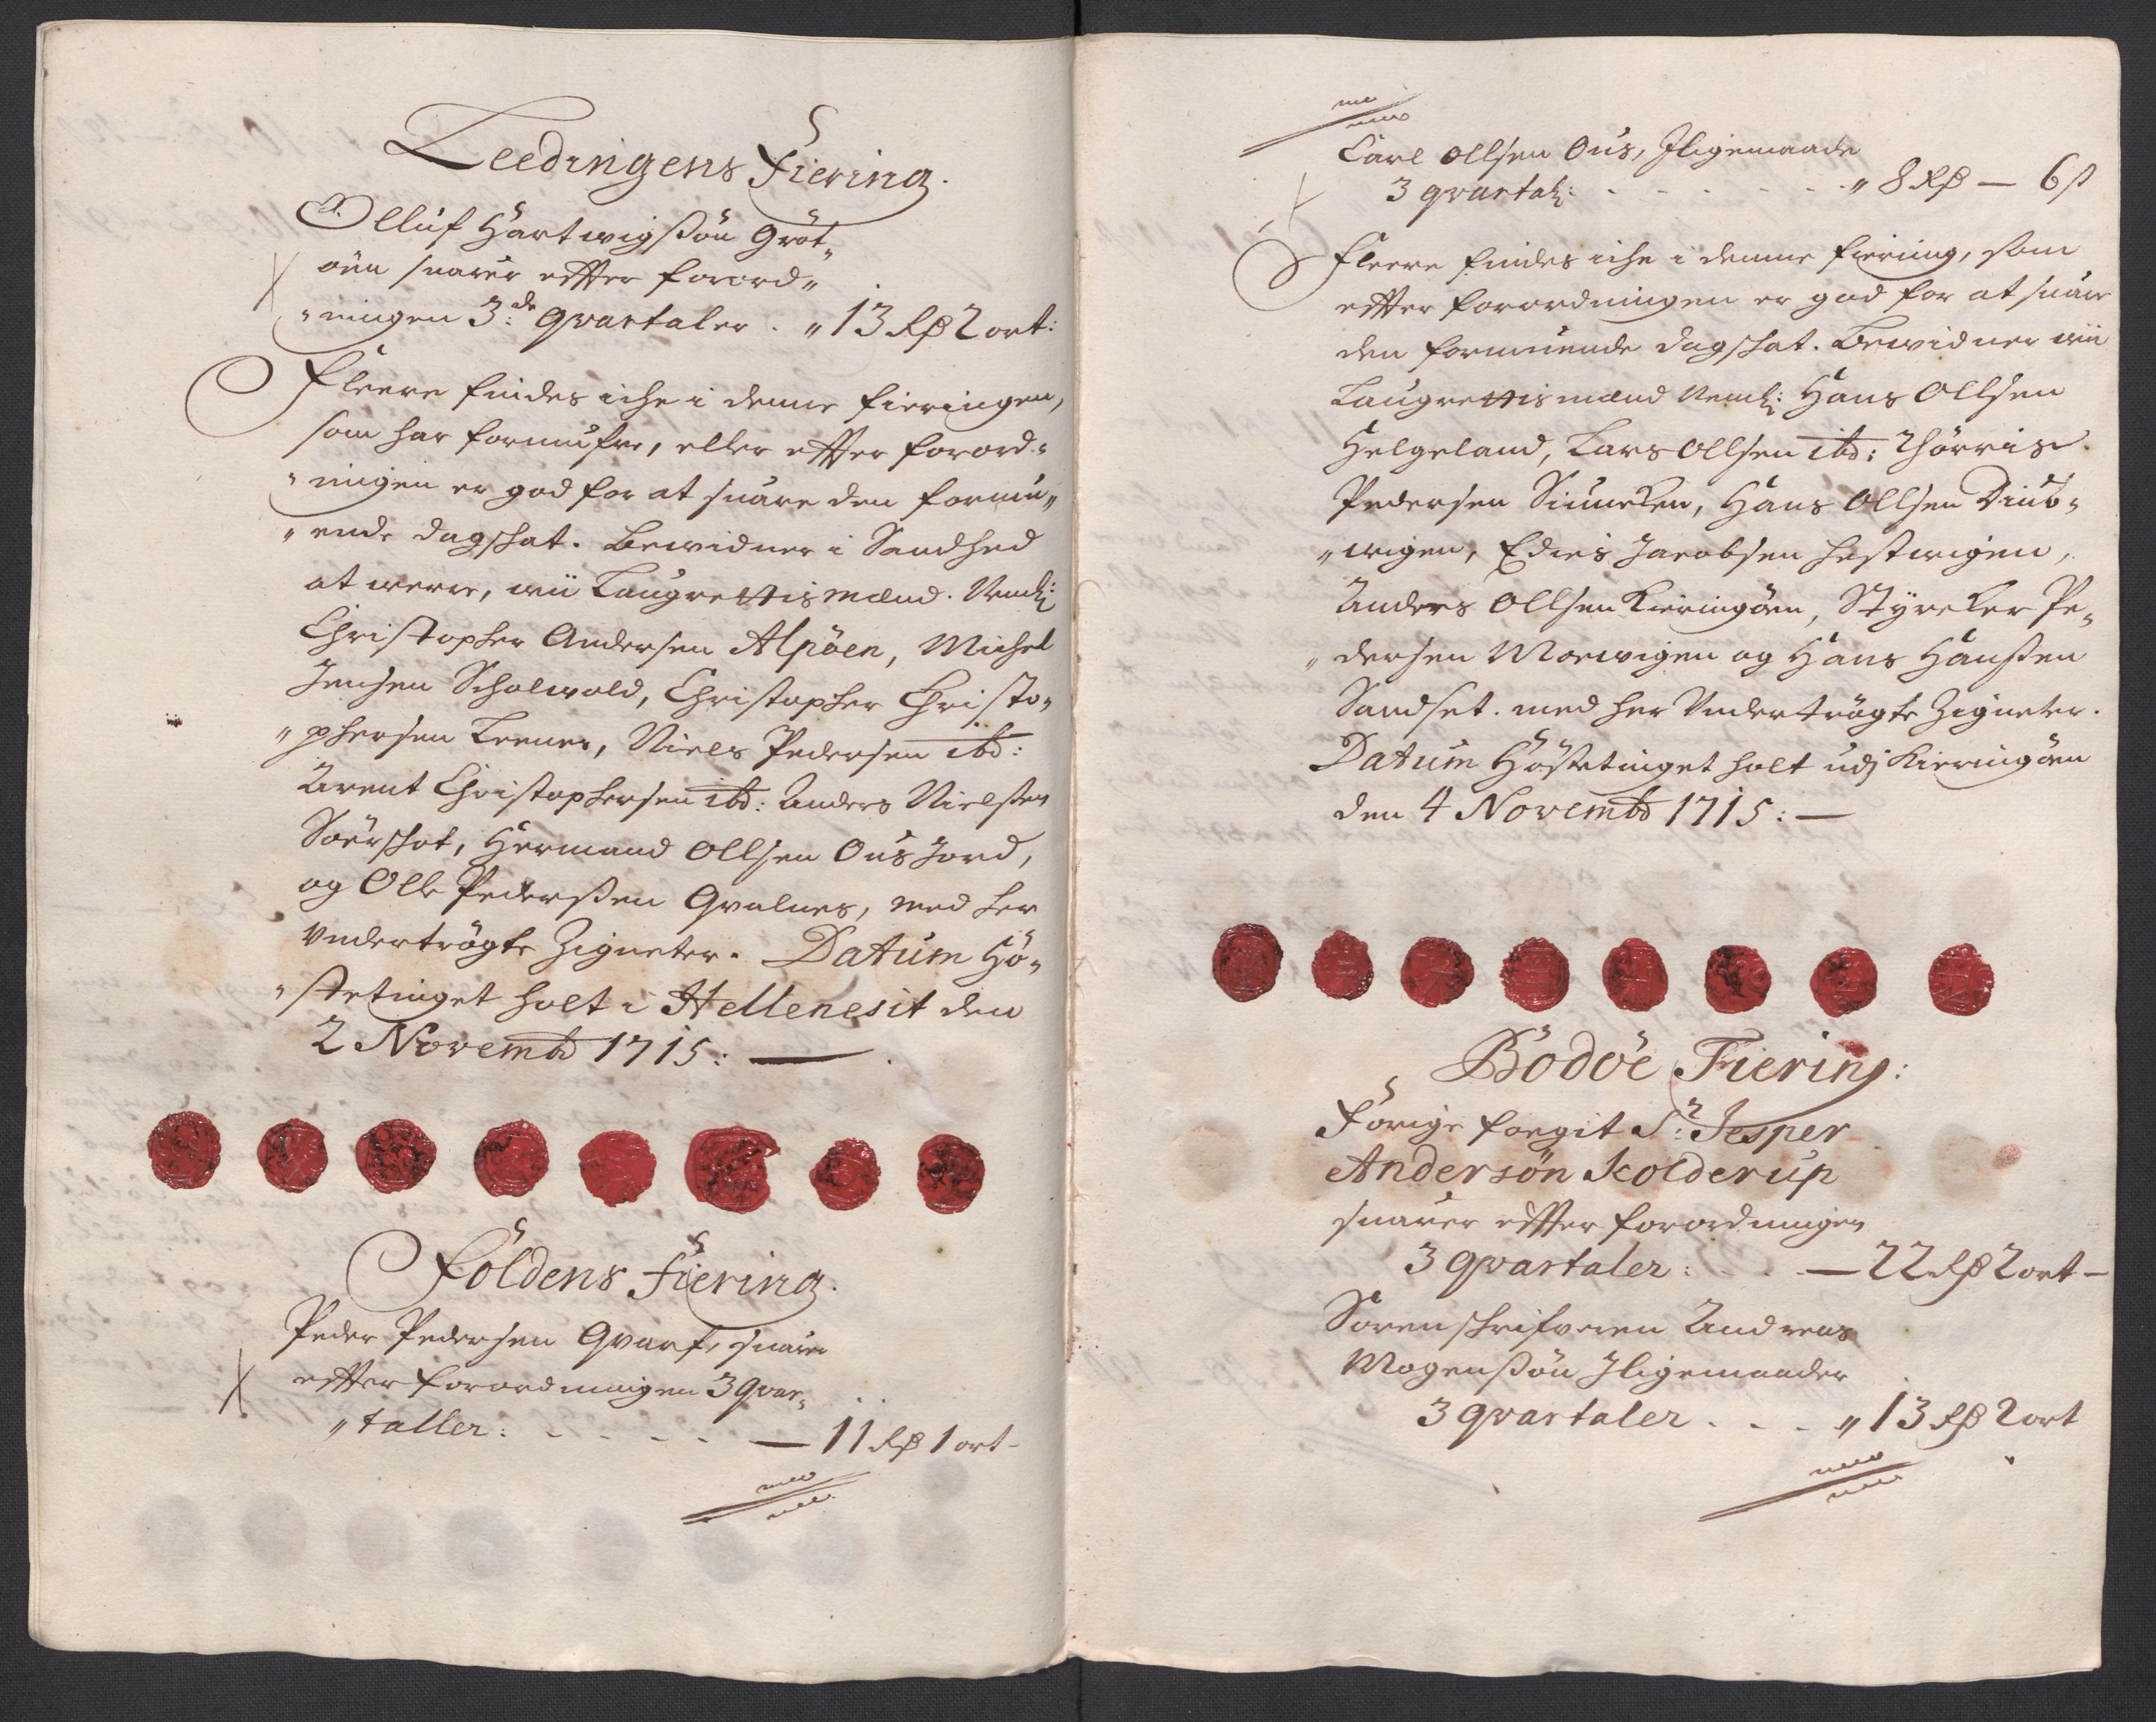 Leedingens Fiering.
Olluf Hartwigsøn Gröt„
öen suarer effter forord„
„ningen 3de qvartaler . „ 13 Rd 2 ort:
Fleere findes iche i denne fieringen,
som har formufve, eller effter forord„
„ningen er god for at suare den formu„
„ende dagschat. Bewidner i Sandhed
at were, wii Laugrettismænd. Nemlig:
Christopher Andersen Alpöen, Michel
Jensen Scholwold, Christopher Christo„
„phersen Leenes, Niels Pedersen ibd:
Arent Christophersen ibd: Anders Nielsen
Soerschot, Hermand Ollsen Ous Jord,
og Olle Pederssen Qvalnes, med her
Undertrögte Zigneter. Datum Hö„
„stetinget holt i Hellenesit den
2 Novembr 1715: —
Foldens Fiering.
Peder Pedersen Qvarf, suarer
effter forordningen 3 Qvar„
„taller: . . . . — 11 Rd 1 ort –
Carl Ollsen Ous, Jligemaade
3 qvartal: . . . . . . „ 8 Rd — 6 ß
Fleere findes iche i denne fiering, som
effter forordningen er god for at suare
den formuende dagschat. Bewidner wii
Laugrettismænd Neml: Hans Ollsen
Helgeland, Lars Ollsen ibd: Thörris
Pedersen Hans Ollsen Diub„
„wigen, Jacobsen Hestwigen,
Anders Ollsen Kieringöen, Styrcker Pe„
„dersen Morwigen og Hans Hanssen
Sandset. med her Undertrögte Zigneter.
Datum Höstetinget holt udj Kieringöen
den 4 Novembr 1715: —
Bodöe Fiering:
Forige foegit Sr: Jesper
Andersön Kolderup
suarer effter forordningen
3 qvartaler: . . . — 22 Rd 2 ort –
Sorenschrifveren Andreas
Mogensøn Jligemaader
3 qvartaler . . . „ 13 Rd 2 ort